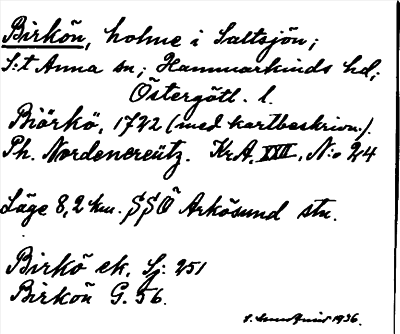 Birkön, holme i Saltsjön;
S:t Anna sn; Hammarkinds hd,
Östergötl. l.
Biörkö, 1722 (med kartbeskrivn.).
Ph. Nordencreütz. KrA, XXII, N:o 24
Läge 8,2 km. SSÖ Arkösund stn.
Birkö ek. Sj. 251
Birkön G. 56.
1936.